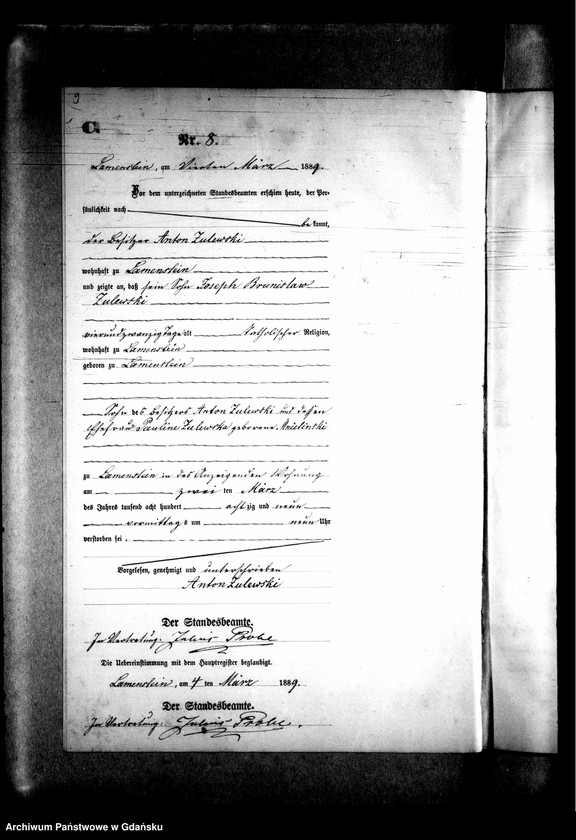 9
C.
Nr. 8.
Lamenstein, am Vierten März 1889.
Vor dem unterzeichneten Standesbeamten erschien heute, der Per-
sönlichkeit nach
be kannt,
der Besitzer Anton Zulewski
wohnhaft zu Lamenstein
und zeigte an, daß sein Sohn Joseph Brunislaw
Zulewski
vierundzwanzig Tage alt katholischer Religion,
wohnhaft zu Lamenstein
geboren zu Lamenstein
Sohn des Besitzers Anton Zulewski und dessen
Ehefrau Pauline Zulewska geborene
zu Lamenstein in des Anzeigenden Wohnung
am zwei ten März
des Jahres tausend acht hundert acht zig und neun
vormittag s um neun Uhr
verstorben sei.
Vorgelesen, genehmigt und unterschrieben
Anton Zulewski
Der Standesbeamte.
In Vertretung: Julius
Die Uebereinstimmung mit dem Hauptregister beglaubigt.
Lamenstein, am 4 ten März 1889.
Der Standesbeamte.
In Vertretung: Julius
Archiwum Państwowe w Gdańsku